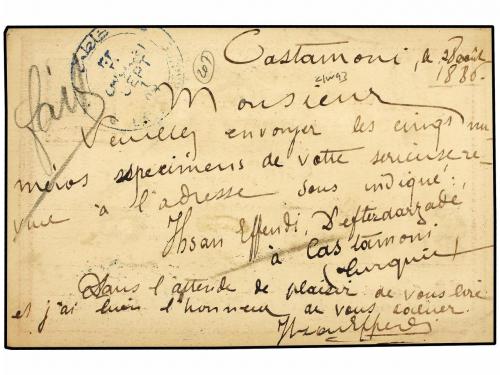 Castamoni, le 28 août
1880.
201
C/W93
Monsieur
fait
Veuillez envoyer les cinqs nu-
méros specimens de votre serieuse re-
vue à l'adresse sous indiqué:,
Ihsan Effendi, Defterdarzadé
à Castamoni
(Turquie)
Dans l'attende de plaisir de vous lire
et j'ai bien l'honneur de vous saluer.
Ihsan Effendi